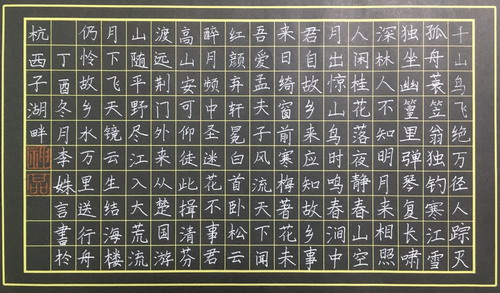 千山鸟飞绝万径人踪灭
孤舟蓑笠翁独钓寒江雪
独坐幽篁里弹琴复长啸
深林人不知明月来相照
人闲桂花落夜静春山空
月出惊山鸟时鸣春涧中
君自故乡来应知故乡事
来日绮窗前寒梅著花未
吾爱孟夫子风流天下闻
红颜弃轩冕白首卧松云
醉月频中圣迷花不事君
高山安可仰徒此揖清芬
渡远荆门外来从楚国游
山随平野尽江入大荒流
月下飞天镜云生结海楼
仍怜故乡水万里送行舟
丁酉冬月李姝言書於
杭西子湖畔